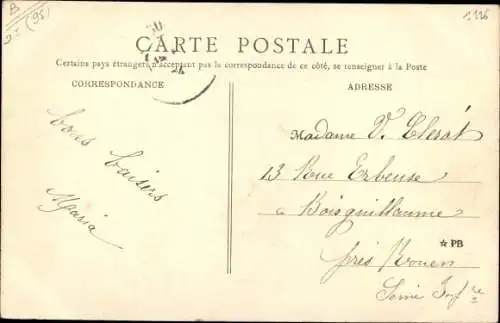 B
(95)
1126
CARTE POSTALE
Certains pays étrangers n'acceptant pas la correspondance de ce côté, se renseigner à la Poste
CORRESPONDANCE
ADRESSE
bons baisers
Maria
Madame V. Clerot
13 Rue Erbeuse
à Boisguillaume
près Rouen
Seine Infre
☆ PB